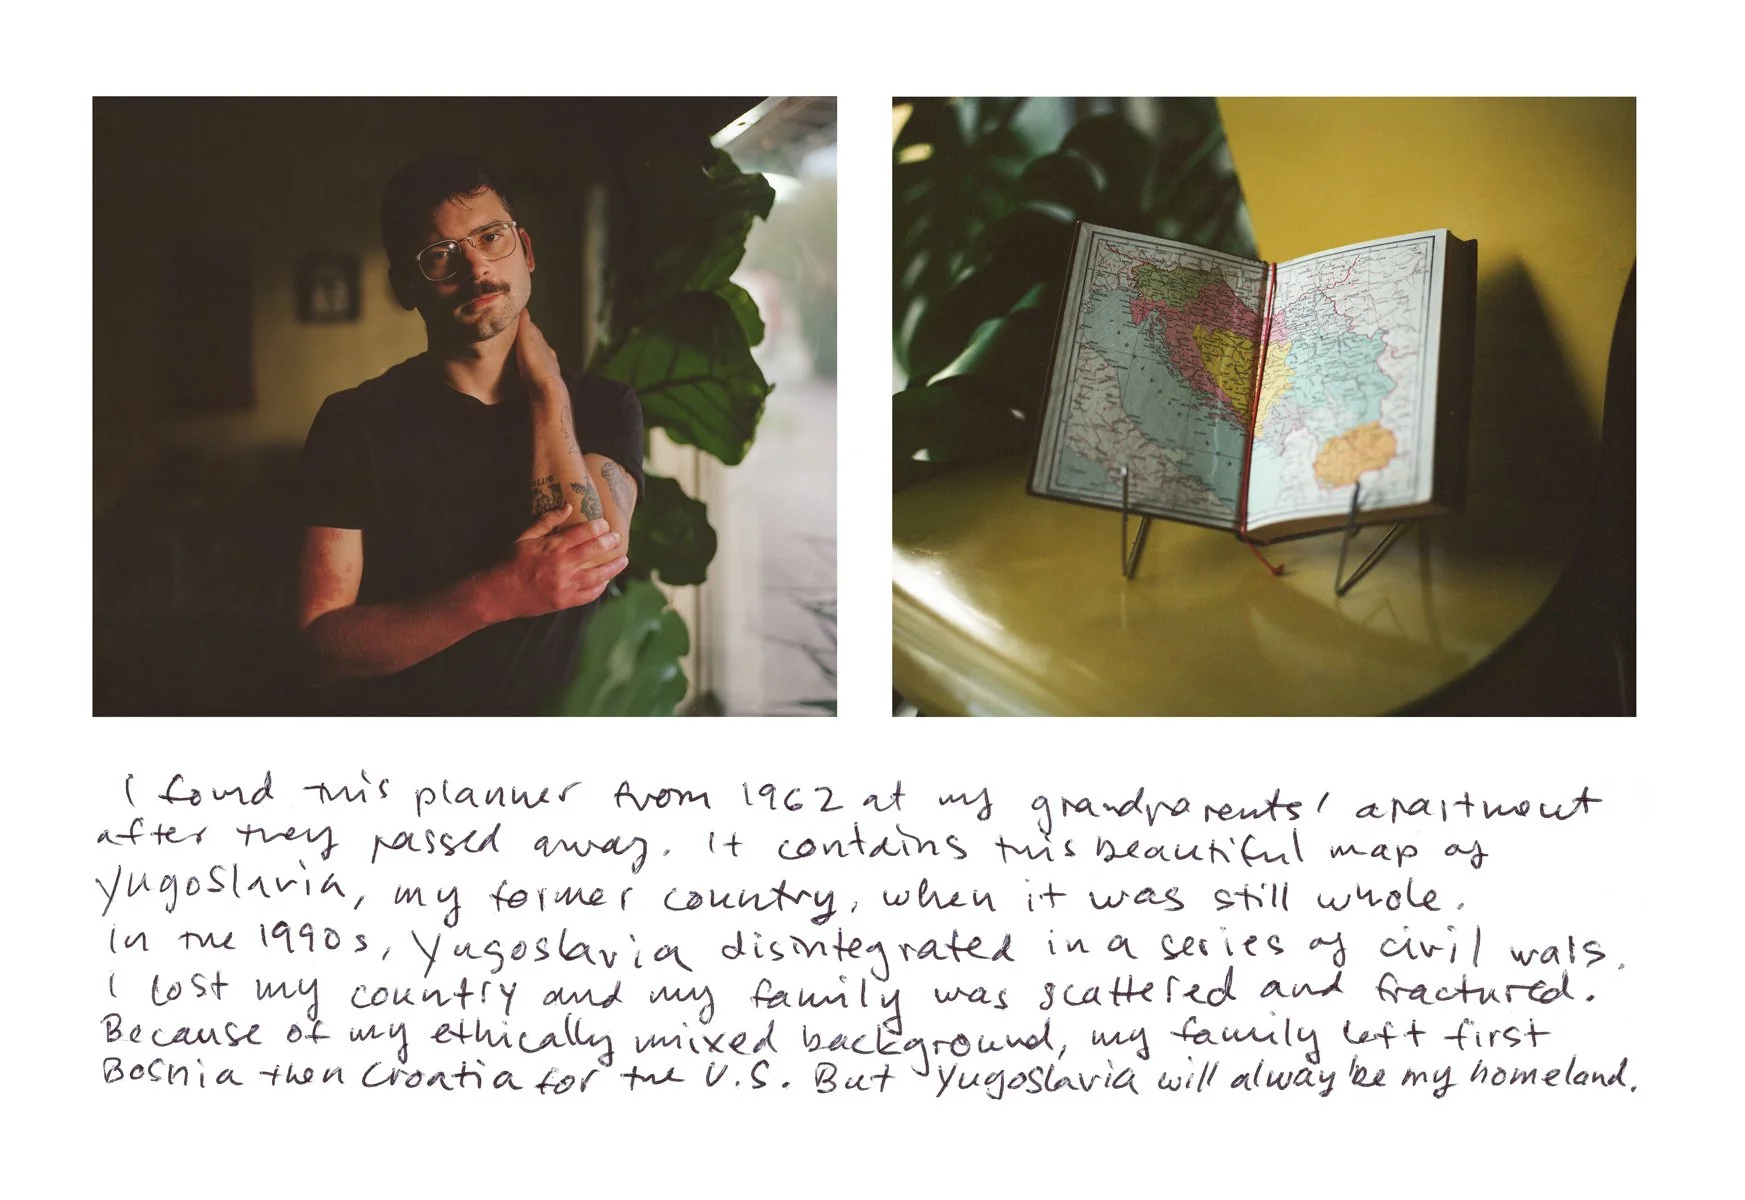 I found this planner from 1962 at my grandparents' apartment
after they passed away. It contains this beautiful map of
Yugoslavia, my former country, when it was still whole.
In the 1990s, Yugoslavia disintegrated in a series of civil wars.
I lost my country and my family was scattered and fractured.
Because of my ethically mixed background, my family left first
Bosnia then Croatia for the U.S. But Yugoslavia will alway be my homeland.